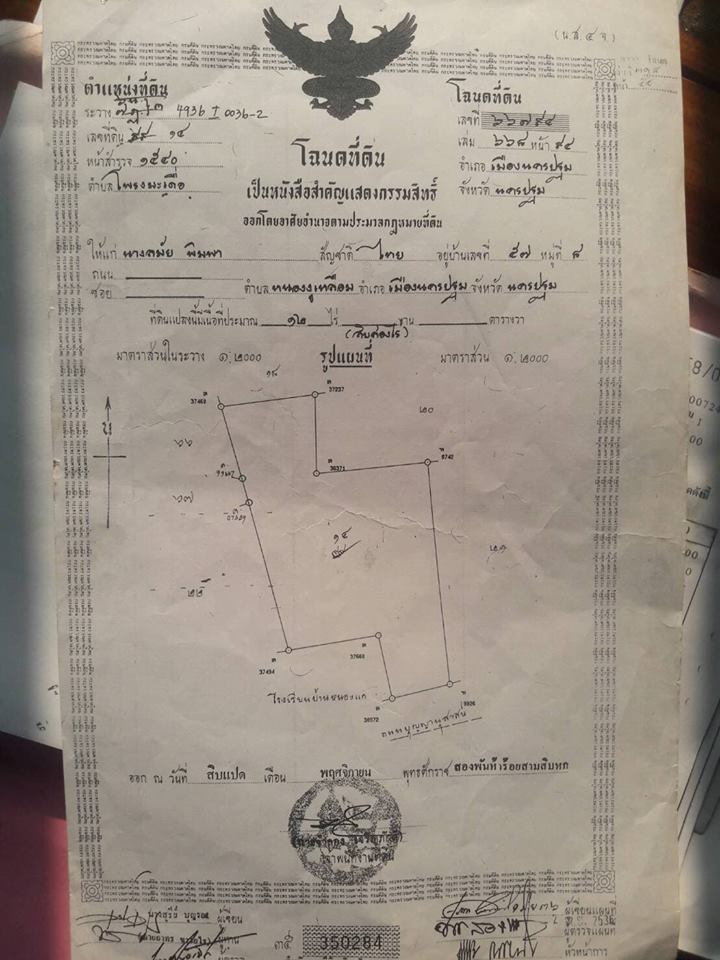 (น.ส. ๔ จ.)
ตำแหน่งที่ดิน
ระวาง 4936 I 0036-2
เลขที่ดิน ๑๔
หน้าสำรวจ ๑๕๔๐
ตำบล โพรงมะเดื่อ
โฉนดที่ดิน
เลขที่ ๖๖๗๙๔
เล่ม ๖๖๘ หน้า ๙๔
อำเภอ เมืองนครปฐม
จังหวัด นครปฐม
โฉนดที่ดิน
เป็นหนังสือสำคัญแสดงกรรมสิทธิ์
ออกโดยอาศัยอำนาจตามประมวลกฎหมายที่ดิน
ให้แก่ นางสมัย พิมพา สัญชาติ ไทย อยู่บ้านเลขที่ ๕๗ หมู่ที่ ๘
ถนน
ซอย ตำบล หนองงูเหลือม อำเภอ เมืองนครปฐม จังหวัด นครปฐม
ที่ดินแปลงนี้มีเนื้อที่ประมาณ ๑๒ ไร่ งาน ตารางวา
(สิบสองไร่)
มาตราส่วนในระวาง ๑:๒๐๐๐ รูปแผนที่ มาตราส่วน ๑:๒๐๐๐
น
37468
37237
๒๐
36371
6742
๖๖
๖๗
๑๔
๒๑
๒๒
37494
37668
36572
9826
โรงเรียนบ้านหนองแก
ถนนบุญญานุสาสน์
ออก ณ วันที่ สิบแปด เดือน พฤศจิกายน พุทธศักราช สองพันห้าร้อยสามสิบหก
เจ้าพนักงานที่ดิน
ผู้เขียน
ผู้ทาน
ผู้ตรวจ
๓๕ 350284
ผู้เขียนแผนที่
2 2536
ผู้ตรวจแผนที่
หัวหน้าการ